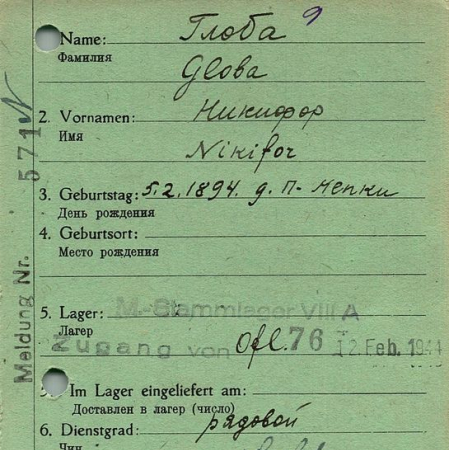 Name: Глоба 9
Фамилия
Globa
2. Vornamen: Никифор
Имя
Nikifor
3. Geburtstag: 5.2.1894. д. П-
День рождения
4. Geburtsort:
Место рождения
5. Lager: M.-Stammlager VIII A
Лагерь
Zugang von Ofl. 76 12. Feb. 1944
Im Lager eingeliefert am:
Доставлен в лагерь (число)
6. Dienstgrad: рядовой
Чин
Meldung Nr. 571 N